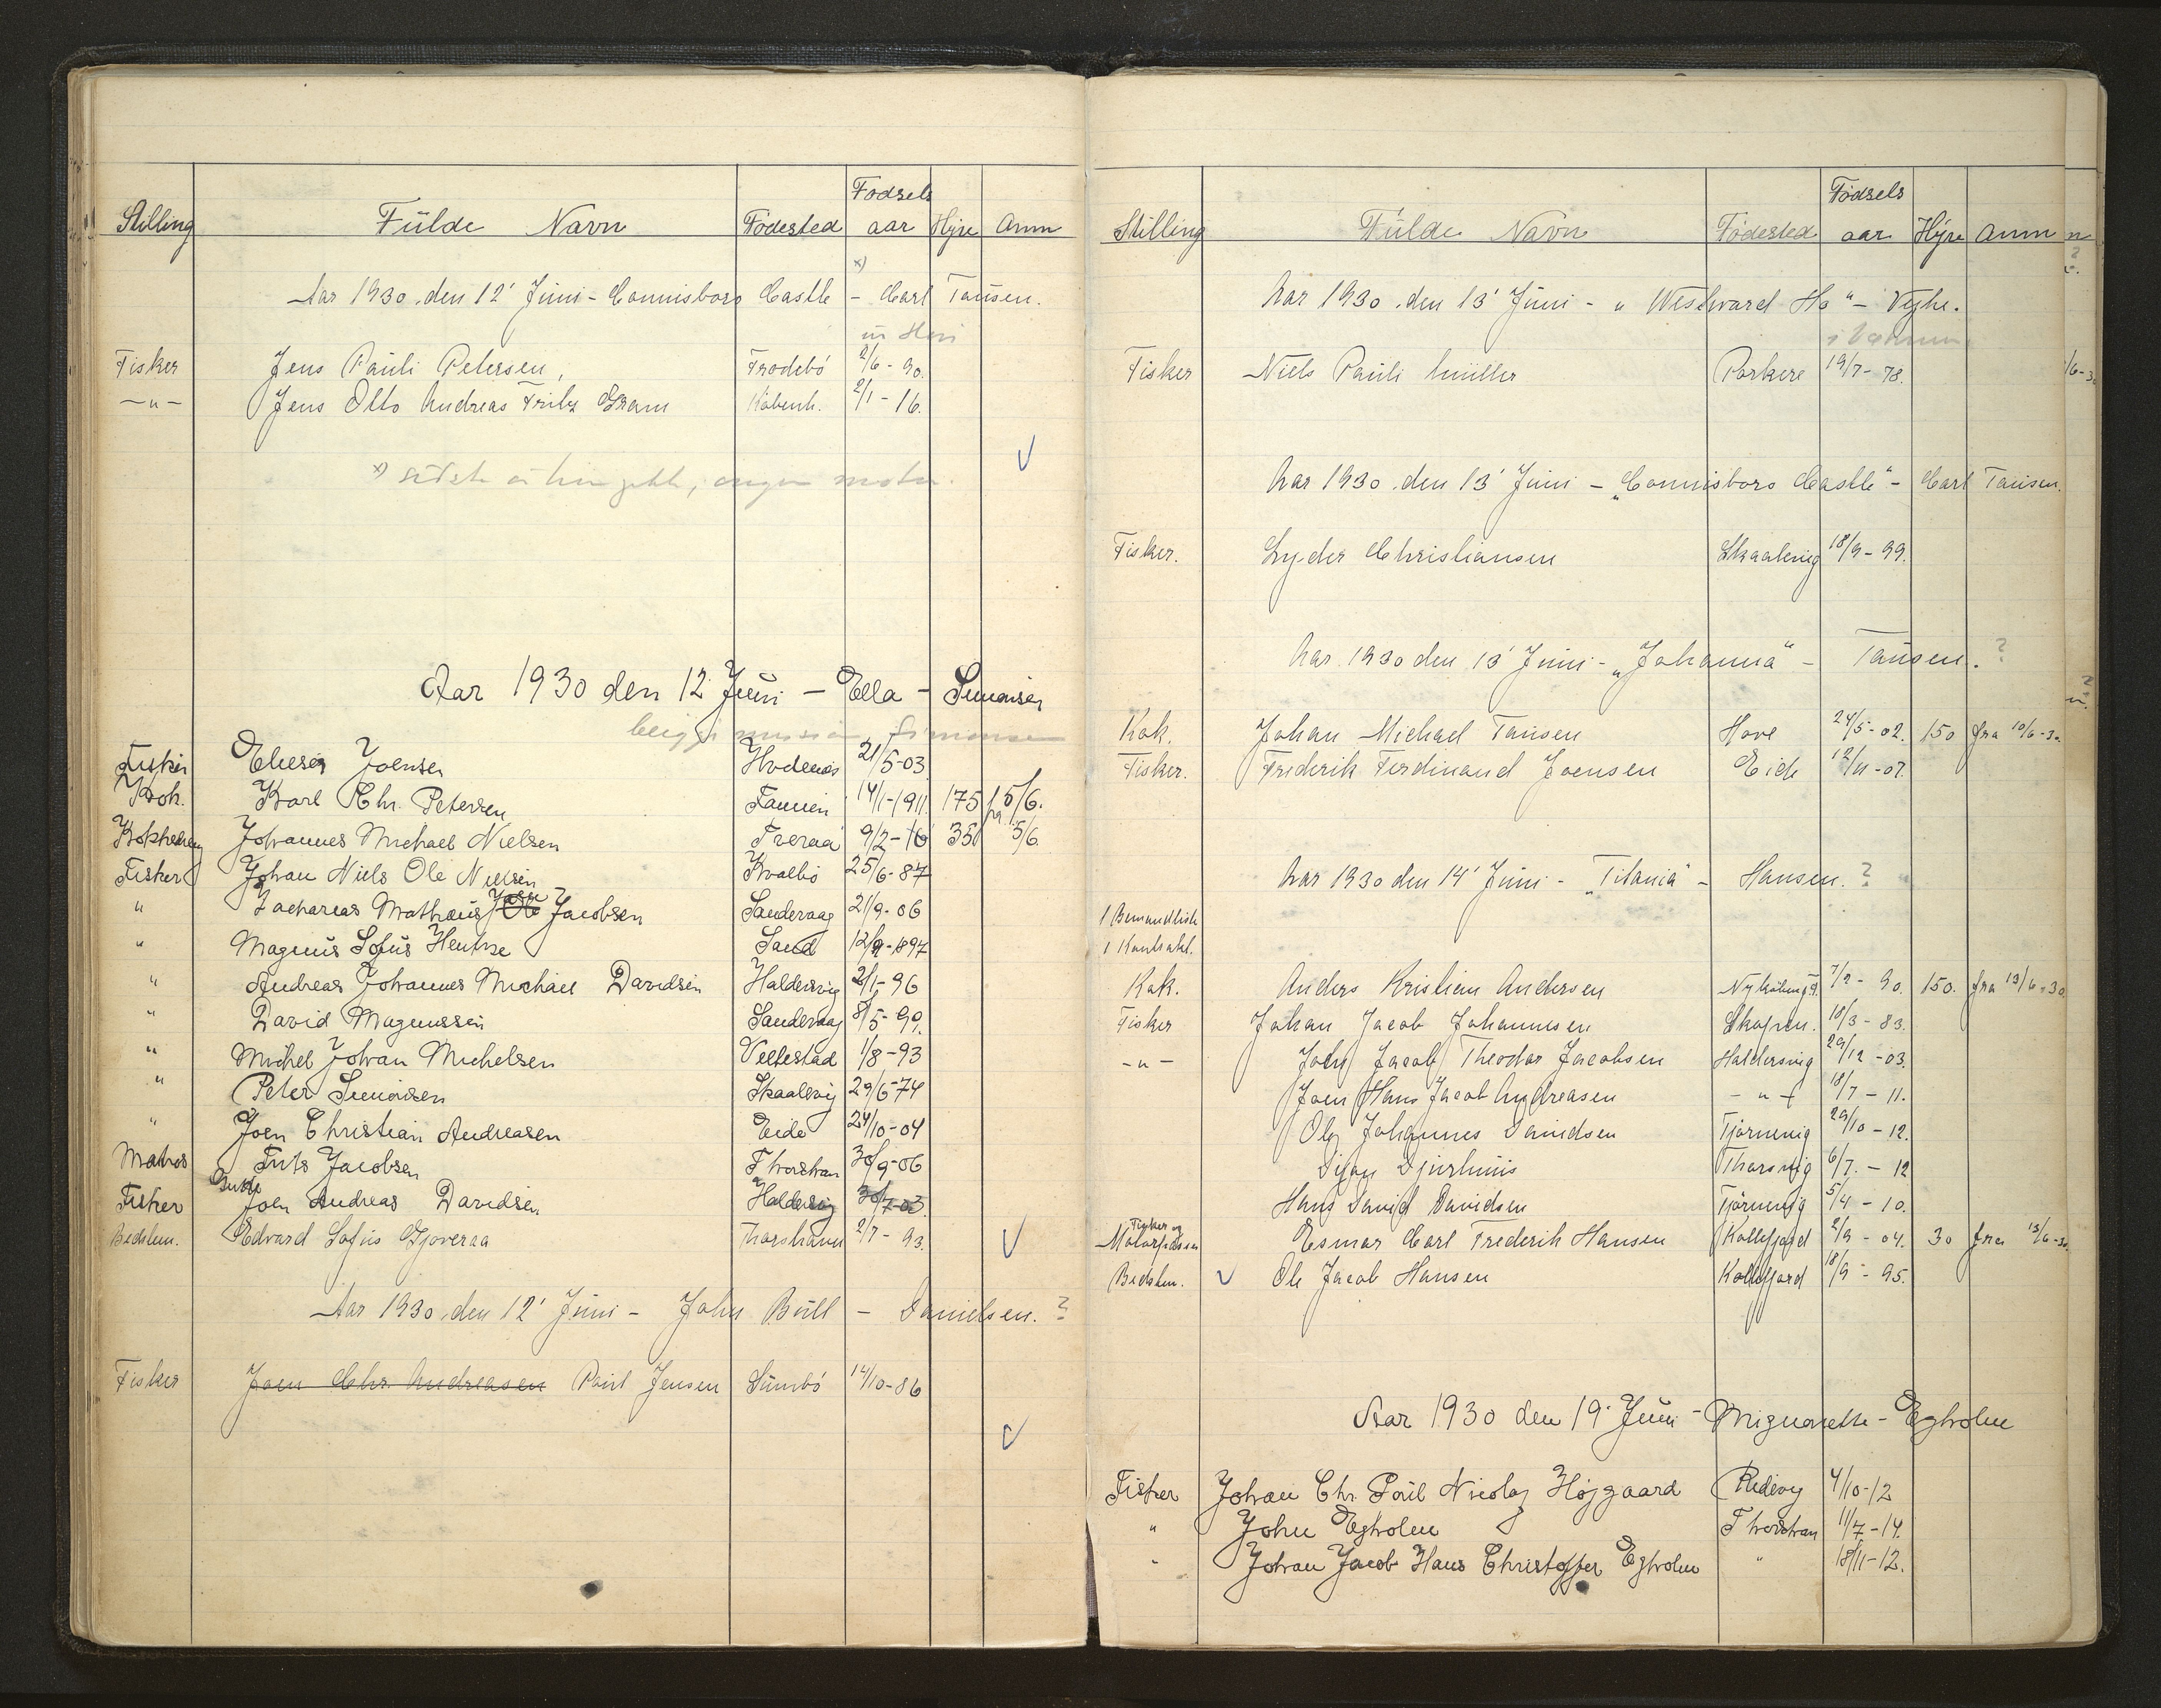 Fødsels
Stilling Fülde Navn Födested aar Hyre Anm
x)
Aar 1930 den 12' Jüni - Connisboro Castle - Carl Tausen.
Fisker Jens Pauli Petersen, Frodebö 2/6 - 90.
-"- Jens Otto Andreas Fritz GramKöbenh. 2/1 - 16.
x)
Aar 1930 den 12 Jüni - Ella - Simonsen
Simonsen
Fisker Elieser Joensen 21/5-03
Kok. Karl Chr. Petersen Famien 14/1-1911. 175 fra 5/6.
Johannes Michael Nielsen Tveraa 9/2-16 35 5/6.
Fisker Johan Niels Ole Nielsen Kvalbö 25/6-87
" Zacharias Mathæus Jacobsen Sandevaag 21/9-06
" Magnus Sofus Hentze Sand 12/9-1897
" Andreas Johannes Michael Davidsen Haldersvig 2/1-96
" David Magnussen Sandevaag 8/5-99.
" Michel Johan Michelsen Vellestad 1/8-93
" Peter Simonsen Skaalevig 29/6-74
" Joen Christian Andreasen Eide 24/10-04
Matros Frits Jacobsen Thorshavn 30/9-06
Fisker Joen Andreas Davidsen Haldersvig 30/7-03.
Bedstem. Edvard Sofus Gjoveraa Thorshavn 2/7 - 93.
Aar 1930 den 12' Jüni - John Büll - Danielsen. ?
Fisker Joen Chr. Andreasen Paul Jensen Sümbö 14/10-86
Födsels
Stilling Fülde Navn Födested aar Hyre Anm
Aar 1930 den 13' Jüni - "Westward Ho" - Vejhe.
Fisker Niels Pauli Müller Porkere 19/7 - 78.
Aar 1930 den 13' Jüni - "Connisboro Castle" - Carl Tausen.
Fisker. Lyder Christiansen Skaalevig 18/9 - 99.
Aar 1930 den 13' Jüni - "Johanna" - Tausen. ?
Kok. Johan Michael Tausen Hove 24/5-02. 150 fra 10/6-30.
Fisker. Frederik Ferdinand Joensen Eide 12/11-07.
Aar 1930 den 14' Jüni - "Titania" - Hansen. ?
1 Bemandlish
1 Kontrakt.
Kok. Anders Kristian Andersen 7/2 - 90. 150. fra 13/6-30.
Fisker Johan Jacob Johannesen Skopen. 18/3 - 83.
-"- John Jacob Theodor Jacobsen Haldersvig 29/12 - 03.
Joen Hans Jacob Andreasen -"- 18/7 - 11.
Ole Johannes Davidsen Tjörnevig 29/10 - 12.
Djurhuus Thorsvig 6/7. - 12
Hans David Davidsen Tjörnevig 5/4 - 10.
Fisker og
Motorpasser Esmar Carl Frederik Hansen Kollefjord 2/9 - 04. 30 fra 13/6-30.
Bedstem. Ole Jacob Hansen Kollefjord 18/9 - 95.
Aar 1930 den 19' Juni - Mignonette - Egholm
Fisker Johan Chr. Poul Nicolaj Højgaard Redivig 4/10-12
" John Egholm Thorshavn 11/7-14.
" Johan Jacob Hans Christoffer Egholm " 18/11-12.